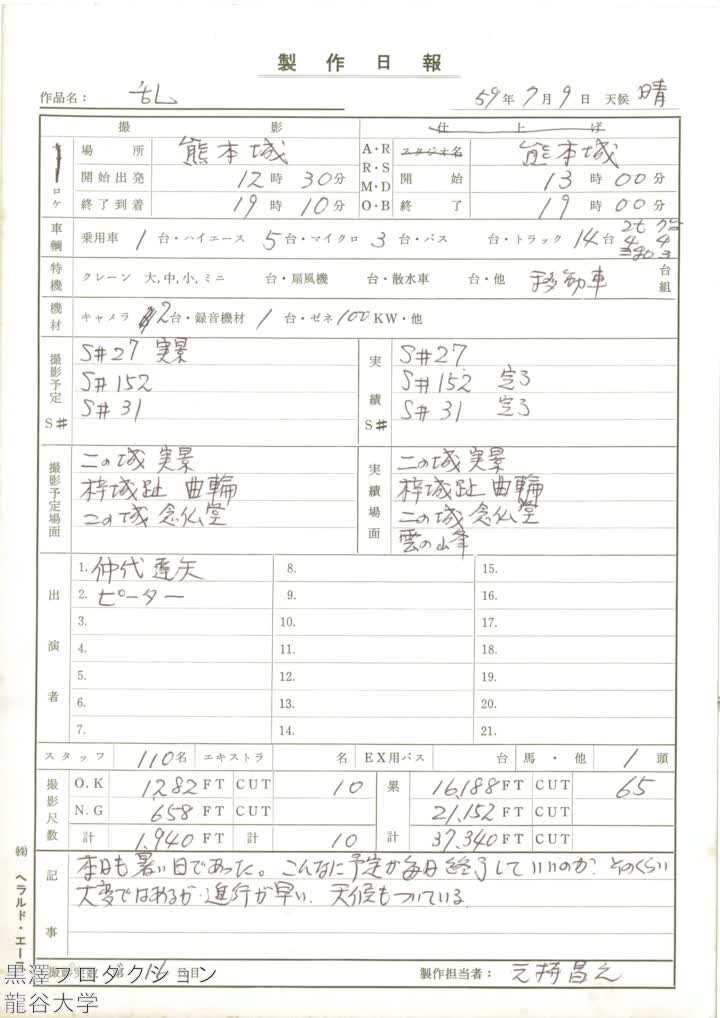 製作日報
作品名： 乱 59年7月9日 天候 晴
撮影 仕上げ
1 ロケ 場所 熊本城 A・R R・S M・D O・B スタジオ名 熊本城
開始出発 12時30分 開始 13時00分
終了到着 19時10分 終了 19時00分
車輌 乗用車 1台・ハイエース 5台・マイクロ 3台・バス 台・トラック 14台 2t 4
特機 クレーン 大,中,小,ミニ 台・扇風機 台・散水車 台・他 移動車 台組
機材 キャメラ 2台・録音機材 1台・ゼネ 100KW・他
撮影予定 S# 実績 S#
S#27 実景 S#27
S#152 S#152 完了
S#31 S#31 完了
撮影予定場面 実績場面
二の城 実景 二の城 実景
梓城趾 曲輪 梓城趾 曲輪
二の城 念仏堂 二の城 念仏堂
雲の峰
出演者
1. 仲代達矢 8. 15.
2. ピーター 9. 16.
3. 10. 17.
4. 11. 18.
5. 12. 19.
6. 13. 20.
7. 14. 21.
スタッフ 110名 エキストラ 名 EX用バス 台 馬・他 1頭
撮影尺数 O.K 1,282FT CUT 10 累計 16,188FT CUT 65
N.G 658FT CUT 21,152FT CUT
計 1,940FT 計 10 37,340FT CUT
記事
本日も暑い日であった。こんなに予定が毎日終了していいのか。そのくらい
大変ではあるが進行が早い。天候もついている。
撮影実数 第16日目 製作担当者：
㈱ヘラルド・エース
黒澤プロダクション
龍谷大学